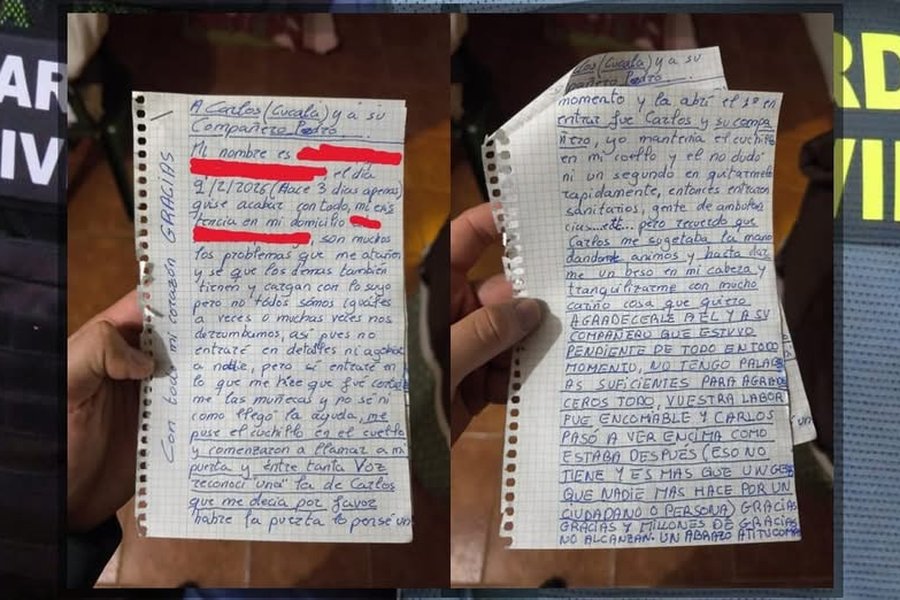 A Carlos (Cucala) y a su
Compañero Pedro
Mi nombre es
el día
2/2/2026 (Hace 3 dias apenas)
quise acabar con todo, mi exis
tencia en mi domicilio
, son muchos
los problemas que me atañen
y se que los demas también
tienen y cargan con lo suyo
pero no todos somos iguales
a veces o muchas veces nos
derrumbamos, así pues no
entraré en detalles ni agobiar
a nadie, pero si entraré en
lo que me hice que fué cortar
me las muñecas y no se ni
como llegó la ayuda, me
puse el cuchillo en el cuello
y comenzaron a llamar a mi
puerta y entre tanta Voz
reconocí "una" la de Carlos
que me decia por favor
habre la puerta lo pensé un
Con todo mi corazón GRACIAS
dos (Cucala) y a su
pañero Pedro
momento y la abrí el 1º en
entrar fue Carlos y su compa
ñero, yo mantenia el cuchillo
en mi cuello y el no dudó
ni un segundo en quitarmelo
rapidamente, entonces entraron
sanitarios, gente de ambulan
cias...ect... pero recuerdo que
Carlos me sugetaba la mano
dandome animos y hasta dar
me un beso en mi cabeza y
tranquilizarme con mucho
cariño cosa que quiero
AGRADECERLE A EL Y A SU
COMPAÑERO QUE ESTUVO
PENDIENTE DE TODO EN TODO
MOMENTO, NO TENGO PALABR
AS SUFICIENTES PARA AGRADE
CEROS TODO, VUESTRA LABOR
FUE ENCOMABLE Y CARLOS
PASÓ A VER ENCIMA COMO
ESTABA DESPUÉS (ESO NO
TIENE Y ES MAS QUE UN GES
QUE NADIE MAS HACE POR UN
CIUDADANO O PERSONA) GRACIAS
GRACIAS Y MILLONES DE GRACIAS
NO ALCANZAN. UN ABRAZO A TI Y